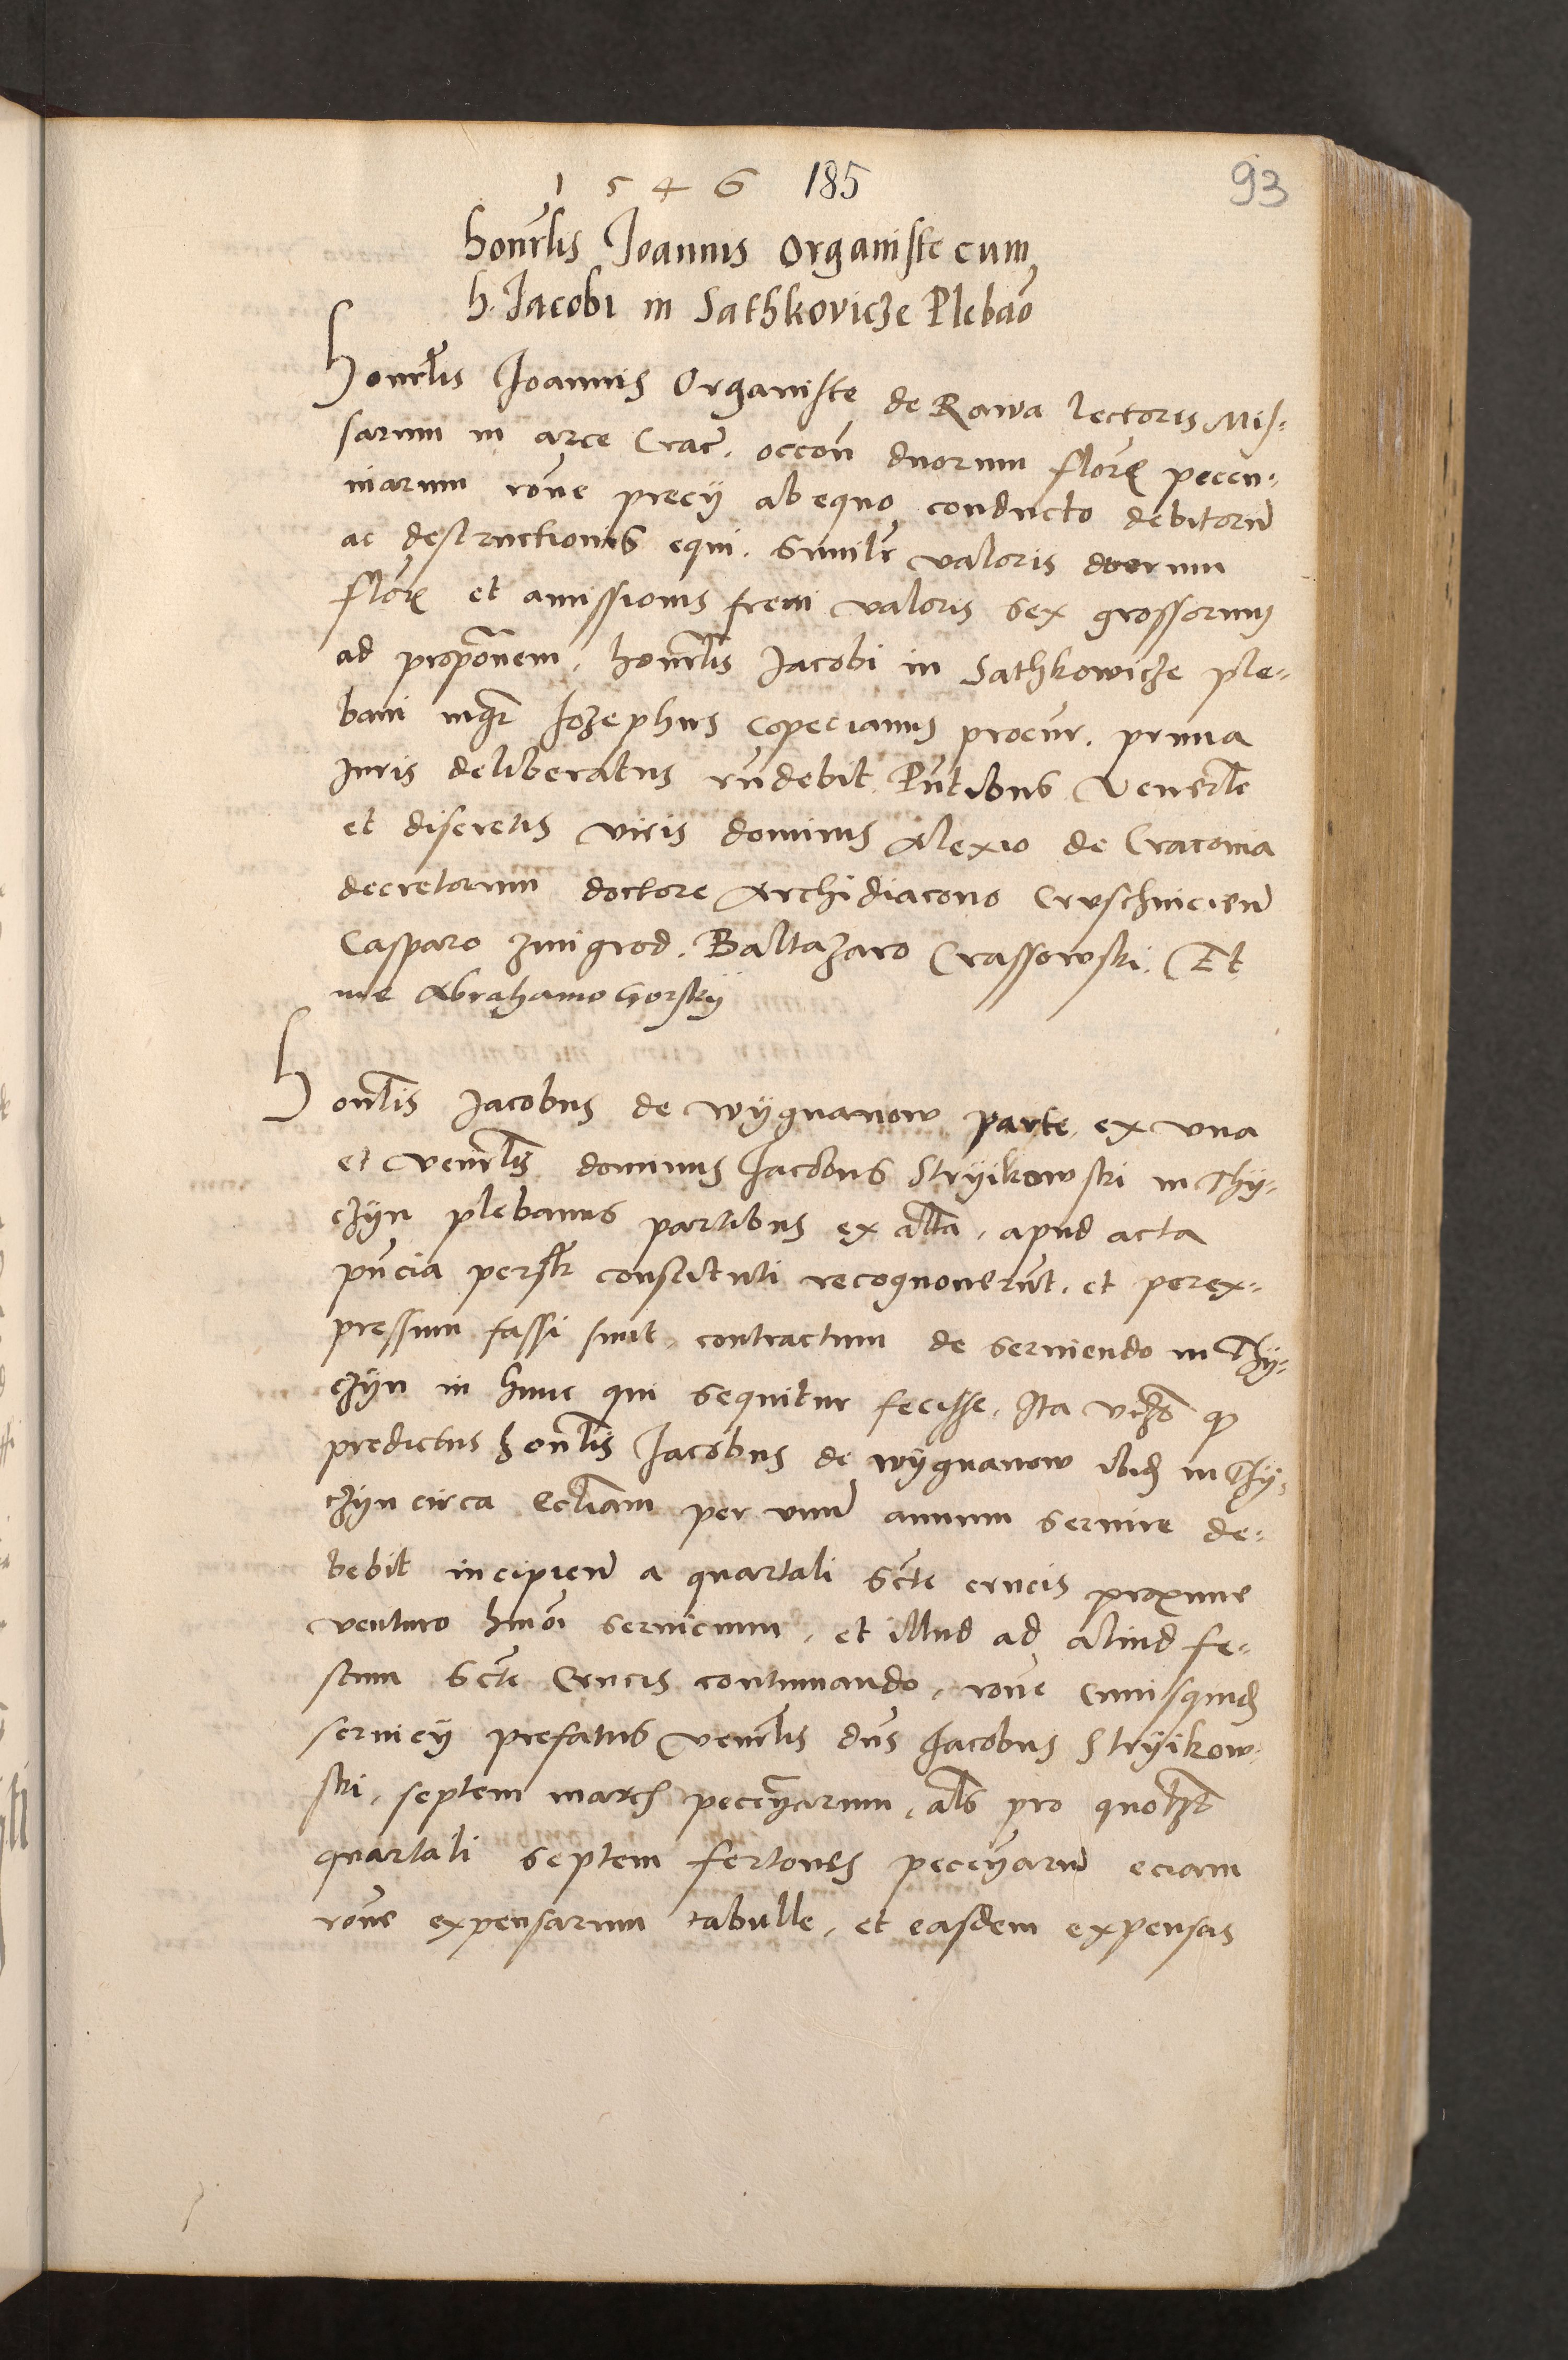 1 5 4 6 185
93
honrlis Joannis Organiste cum
h. Jacobi in Sathkovicze Plebāo
Honrlis Joannis Organiste de Rawa lectoris Mis-
sarum in arce Crac. occōn duorum florē peccu-
niarum rōne precÿ ab equo conducto debitorū
ac destructionis equi. similr valoris duorum
florē et amissionis freni valoris sex grossorum
ad propōnem, honrlis Jacobi in Sathkowicze ple-
bani mgr Jozephus Copecianus procur. prima
Juris deliberatus rūdebit Pñtibus Venerle
et discretis viris dominis Alexio de Cracovia
decretorum doctore Archidiacono Cruschvicien
Casparo Zmigrod. Baltazaro Crassowski. Et
me Abrahamo Gorskÿ
Honrlis Jacobus de Wÿgnanow parte ex una
et Venrlis dominus Jacobus Strÿikowski in Thÿ-
czÿn plebanus partibus ex altā, apud acta
pñcia persłr constituti recognoverūt. et per ex-
pressum fassi sunt, contractum de serviendo in Thÿ-
czÿn in hunc qui sequitur fecisse, Ita vizt q
predictus honrlis Jacobus de Wÿgnanow ibid in Thÿ-
czÿn circa Eccliam per unū annum servire de-
bebit incipien a quartali Scte crucis proxime
venturo hmōi servicium, et illud ad aliud fe-
stum Scte Crucis continuando, rōne cuiusquid
servicÿ prefatus Venrlis dns Jacobus Strÿikow-
ski, septem march peccūiarum, als pro quolzt
quartali septem fertones peccūiarū eciam
rōne expensarum tabulle, et easdem expensas